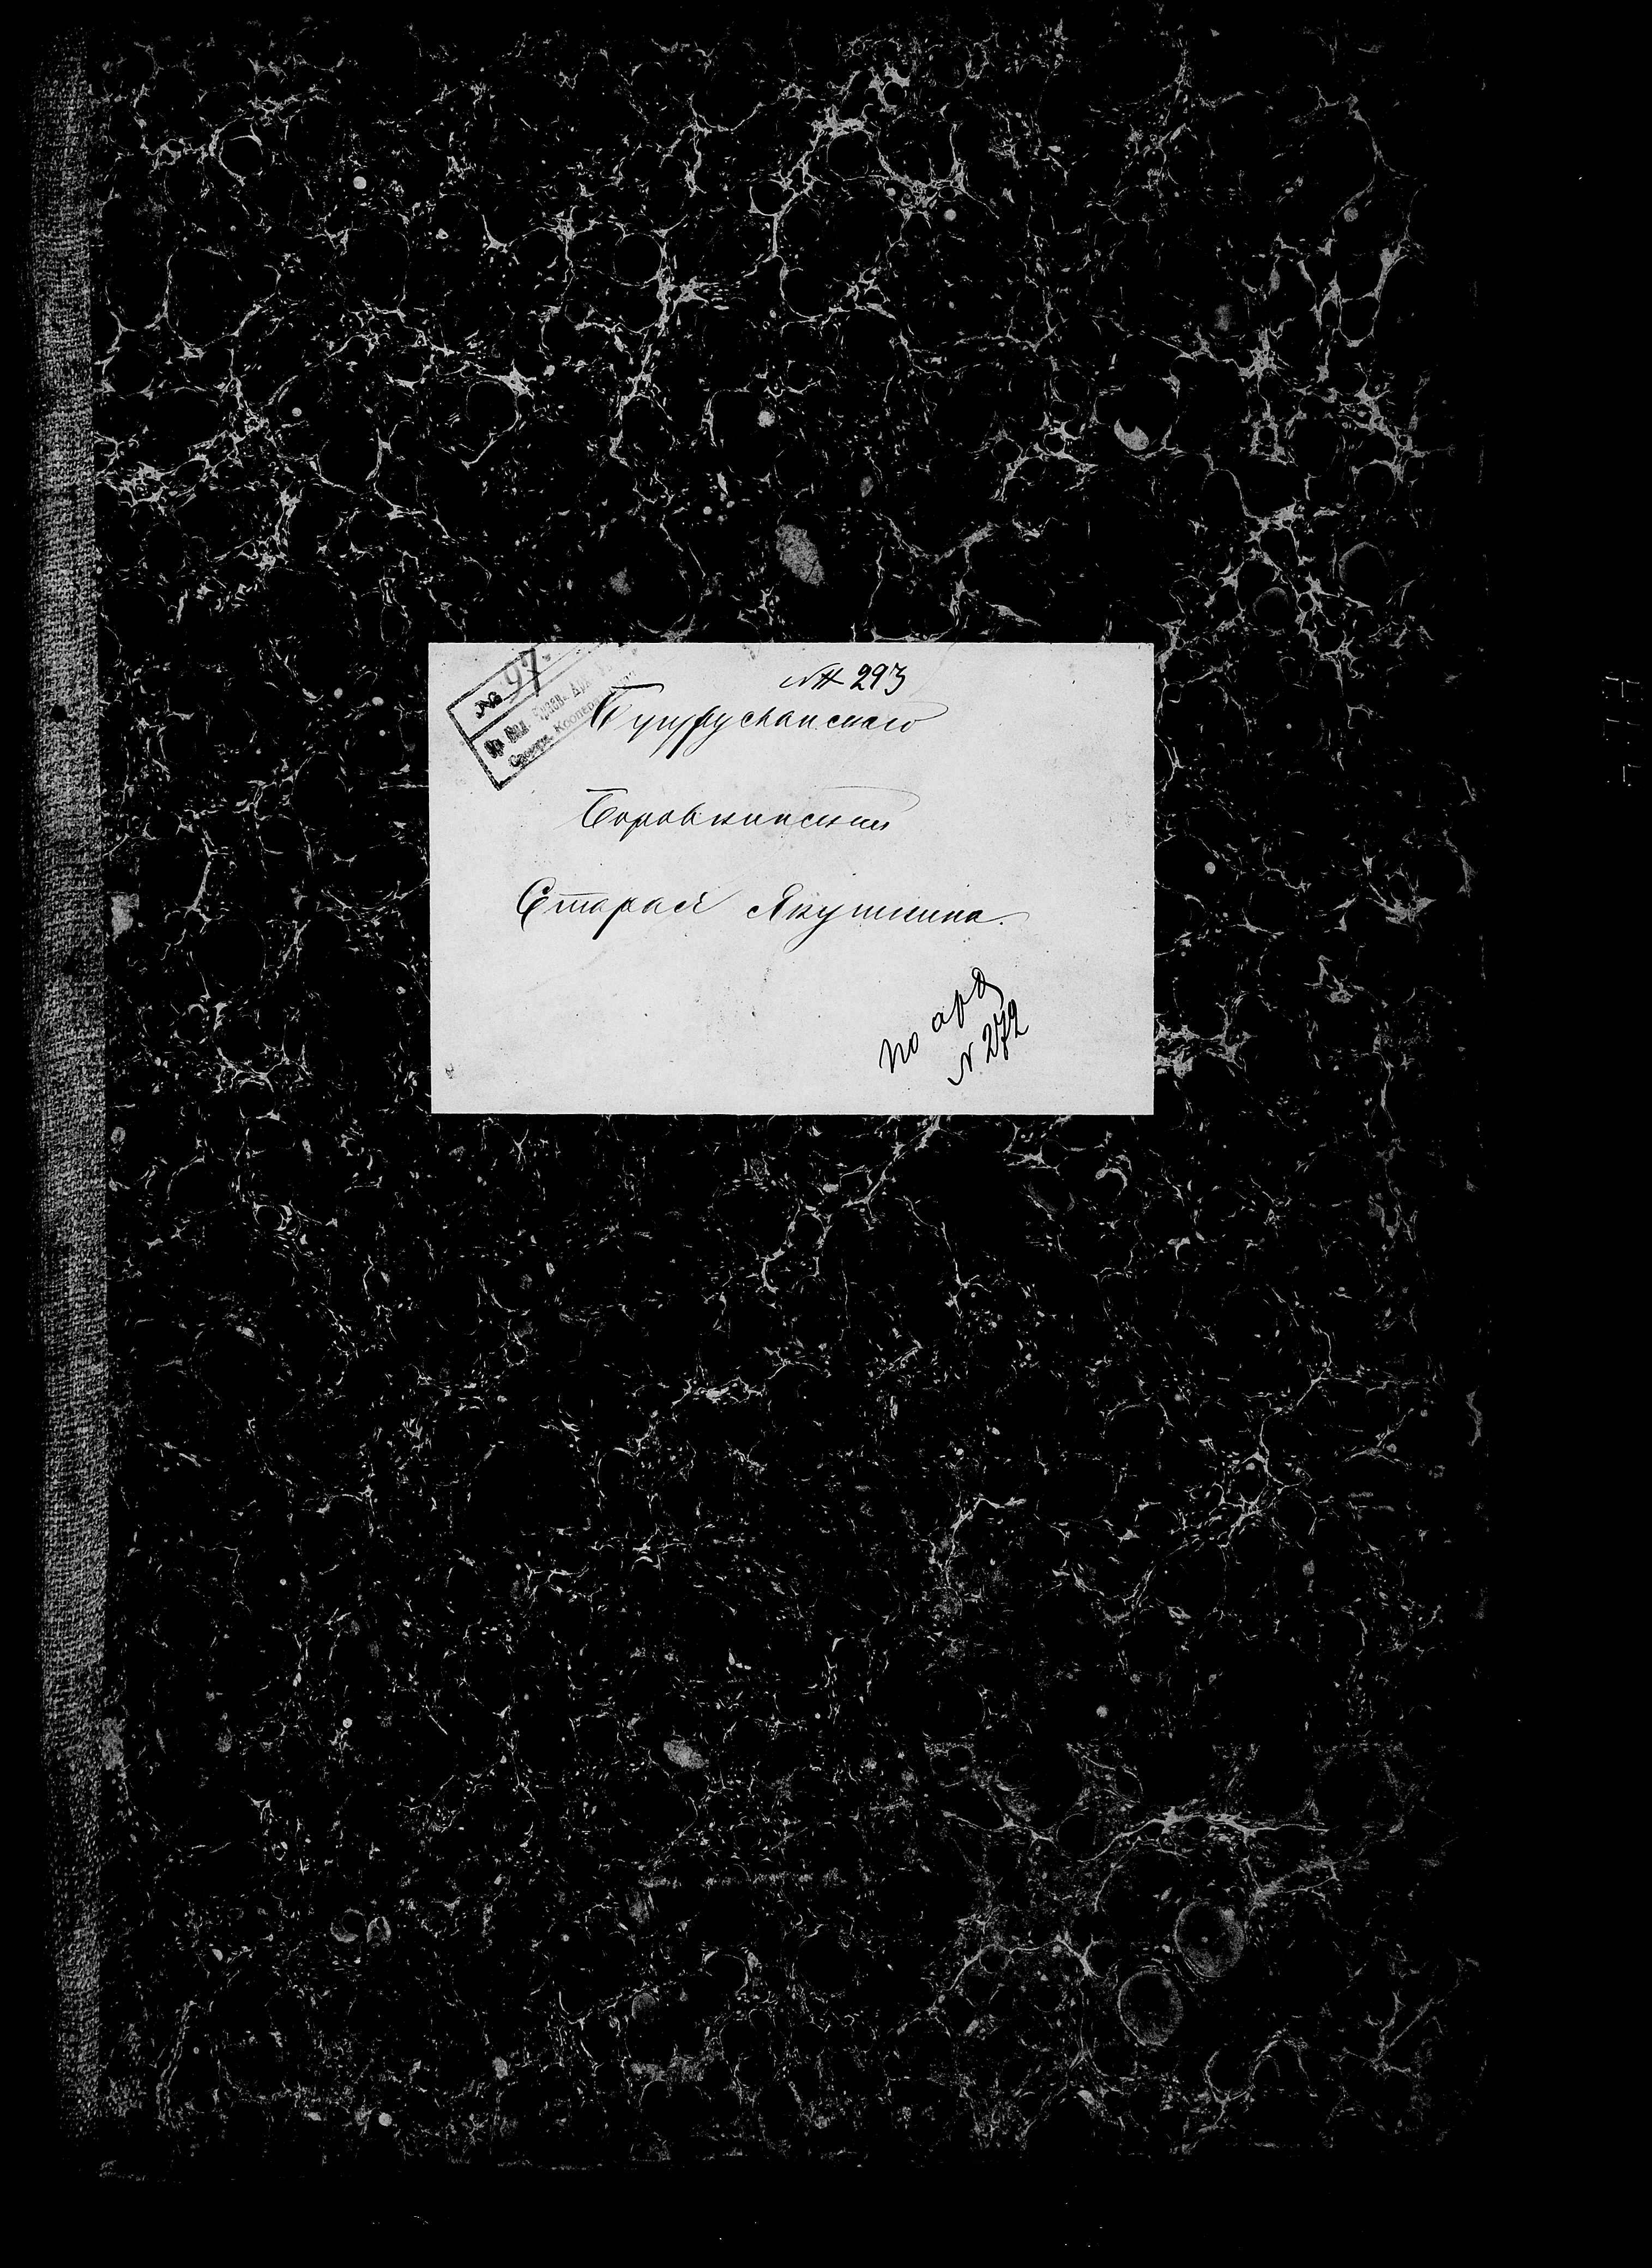 № 97.
№ 293
Бугурусланского
Боровкинская
Старая Якушкина.
по арх
№ 272